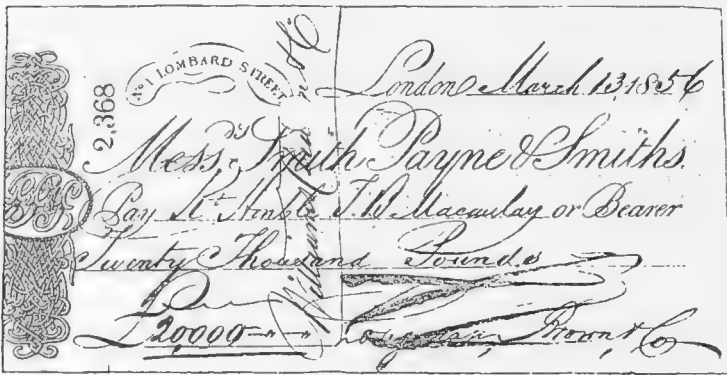 No 1 LOMBARD STREET
London March 13, 1856
2,368
Messrs Smith, Payne & Smiths.
Pay Rt Honble T B Macaulay or Bearer
Twenty Thousand Pounds
£20000
Longman, Brown, & Co
William & Co